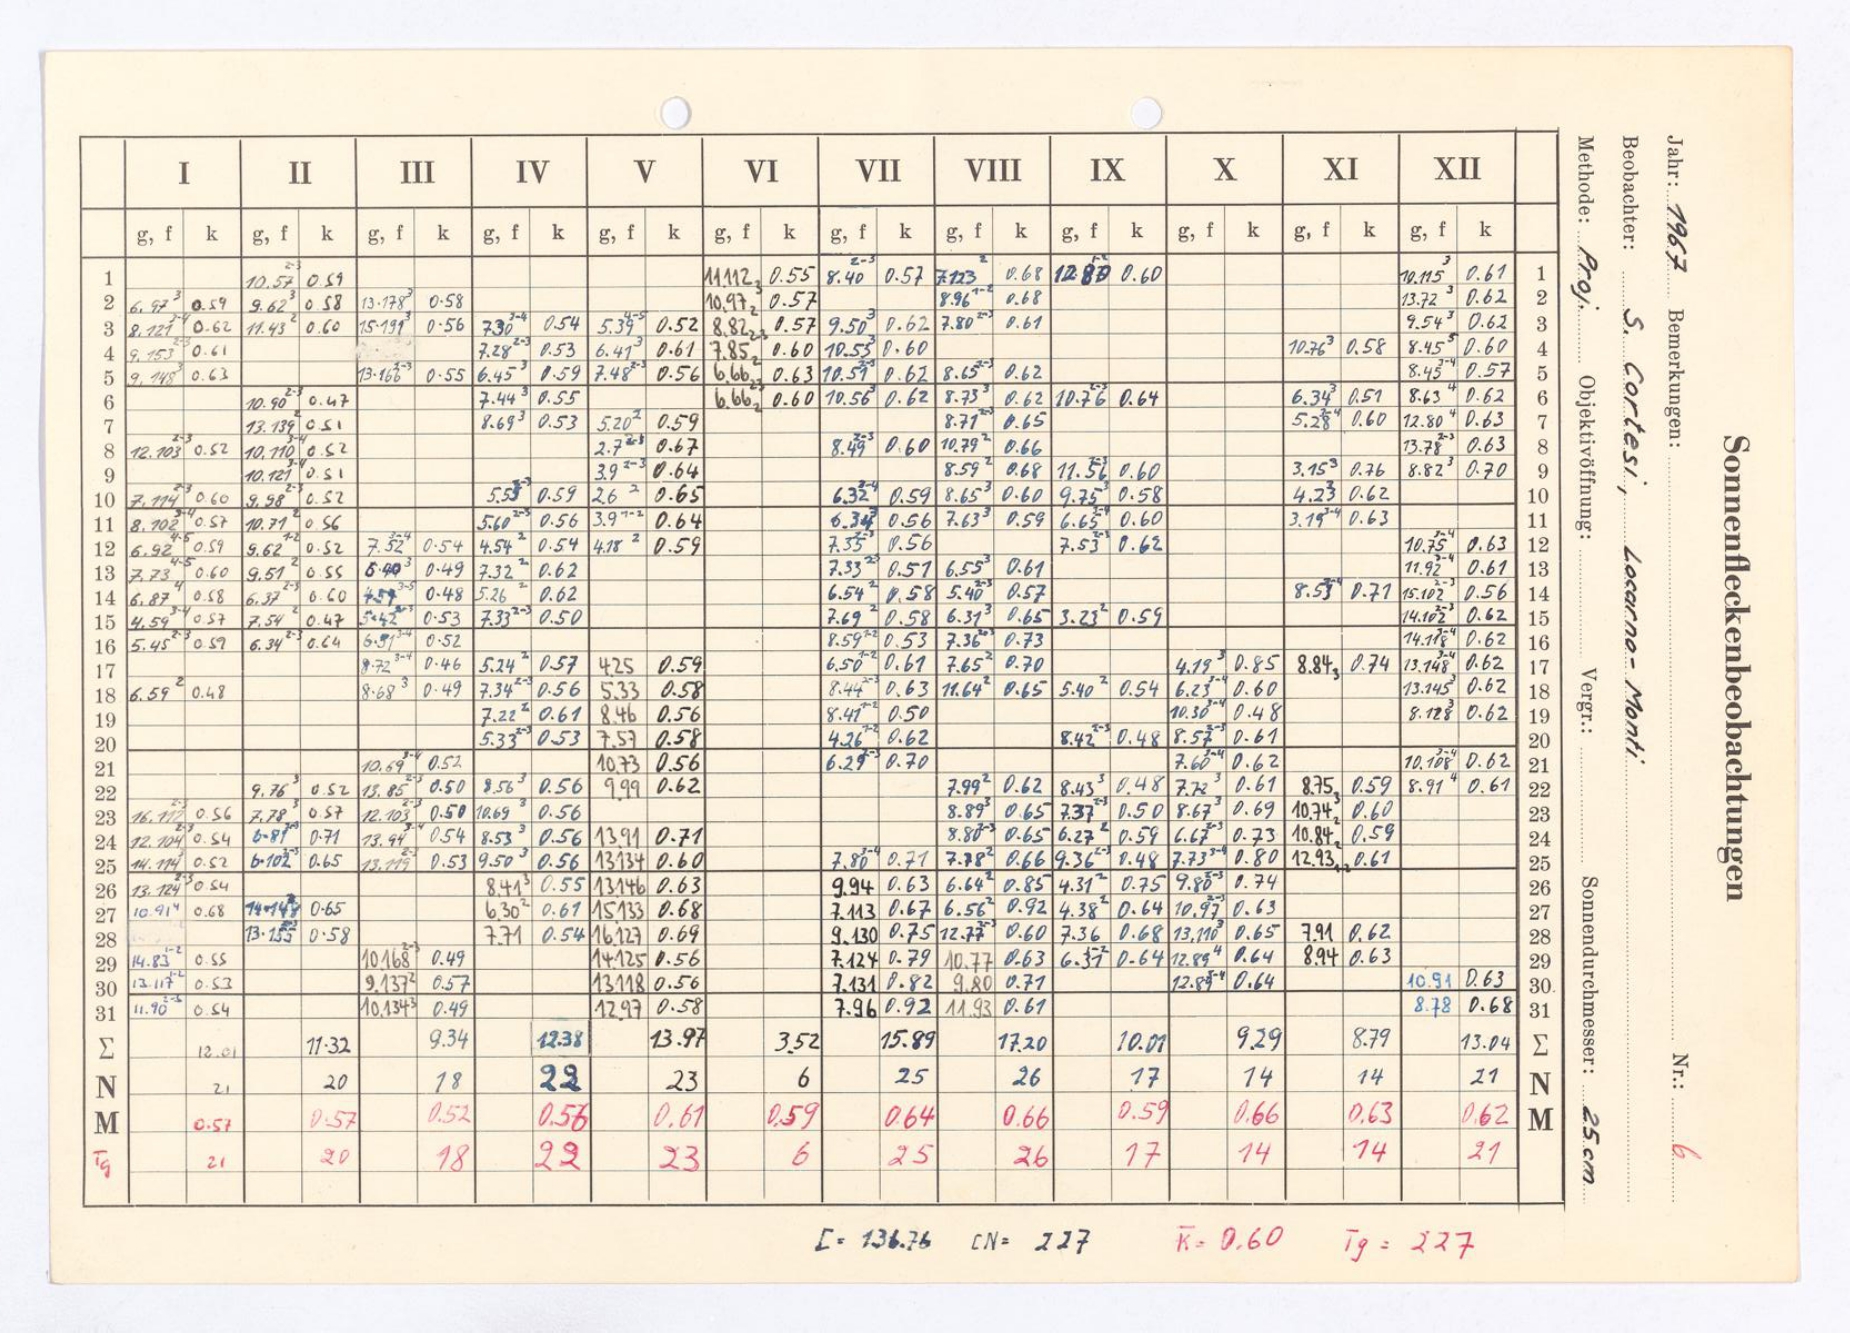 Sonnenfleckenbeobachtungen
Jahr: 1967 Bemerkungen: Nr.: 6
Beobachter: S. Cortesi, Locarno-Monti
Methode: Proj. Objektivöffnung: Vergr.: Sonnendurchmesser: 25 cm
I II III IV V VI VII VIII IX X XI XII
g, f k g, f k g, f k g, f k g, f k g, f k g, f k g, f k g, f k g, f k g, f k g, f k
1 10.57 2-3 0.59 11.112 0.55 8.40 2-3 0.57 7.123 2 0.68 0.60 10.115 3 0.61 1
2 6.97 3 0.59 9.62 3 0.58 13.178 3 0.58 10.97 0.57 8.96 1-2 0.68 13.72 3 0.62 2
3 8.121 3-4 0.62 11.43 2 0.60 15.191 3 0.56 7.30 3-4 0.54 5.39 4-5 0.52 8.82 0.57 9.50 3 0.62 7.80 2-3 0.61 9.54 3 0.62 3
4 9.153 2-3 0.61 7.28 2-3 0.53 6.41 3 0.61 7.85 0.60 10.53 3 0.60 10.76 3 0.58 8.45 0.60 4
5 9.148 3 0.63 13.166 2-3 0.55 6.45 3 0.59 7.48 2-3 0.56 6.66 0.63 10.51 0.62 8.65 2-3 0.62 8.45 3-4 0.57 5
6 10.90 2-3 0.47 7.44 3 0.55 6.66 0.60 10.56 3 0.62 8.73 3 0.62 10.76 2-3 0.64 6.34 3 0.51 8.63 4 0.62 6
7 13.139 2 0.51 8.69 3 0.53 5.20 2 0.59 8.71 2-3 0.65 5.28 0.60 12.80 4 0.63 7
8 12.103 2-3 0.52 10.110 3-4 0.52 2.7 2-3 0.67 8.49 2-3 0.60 10.79 2 0.66 13.78 2-3 0.63 8
9 10.121 3-4 0.51 3.9 2-3 0.64 8.59 2 0.68 11.56 2-3 0.60 3.15 3 0.76 8.82 3 0.70 9
10 7.114 2-3 0.60 9.98 2-3 0.52 5.53 0.59 26 2 0.65 6.32 0.59 8.65 3 0.60 9.75 3 0.58 4.23 0.62 10
11 8.102 3-4 0.57 10.71 2 0.56 5.60 2-3 0.56 3.9 1-2 0.64 6.34 0.56 7.63 3 0.59 6.65 3-4 0.60 3.19 3-4 0.63 11
12 6.92 4-5 0.59 9.62 1-2 0.52 7.52 3-4 0.54 4.54 2 0.54 4.18 2 0.59 7.35 0.56 7.53 0.62 10.75 3-4 0.63 12
13 7.73 4-5 0.60 9.51 2 0.55 0.49 7.32 2 0.62 7.33 2-3 0.51 6.55 3 0.61 11.92 3-4 0.61 13
14 6.87 4 0.58 6.37 2-3 0.60 0.48 5.26 2 0.62 6.54 2 0.58 5.40 2-3 0.57 8.53 0.71 15.102 2-3 0.56 14
15 4.59 3-4 0.57 7.54 2 0.47 5.42 2-3 0.53 7.33 2-3 0.50 7.69 2 0.58 6.31 3 0.65 3.23 2 0.59 14.102 2-3 0.62 15
16 5.45 2-3 0.59 6.34 2-3 0.64 6.51 3-4 0.52 8.59 1-2 0.53 7.36 2-3 0.73 14.118 3-4 0.62 16
17 8.72 3-4 0.46 5.24 2 0.57 4.25 0.59 6.50 1-2 0.61 7.65 2 0.70 4.19 3 0.85 8.84 3 0.74 13.148 3-4 0.62 17
18 6.59 2 0.48 8.68 3 0.49 7.34 2-3 0.56 5.33 0.58 8.44 2-3 0.63 11.64 2 0.65 5.40 2 0.54 6.23 3-4 0.60 13.145 3 0.62 18
19 7.22 2 0.61 8.46 0.56 8.41 1-2 0.50 10.30 3-4 0.48 8.128 3 0.62 19
20 5.33 2-3 0.53 7.57 0.58 4.26 1-2 0.62 8.42 2-3 0.48 8.57 2-3 0.61 20
21 10.69 3-4 0.52 10.73 0.56 6.29 2-3 0.70 7.60 3-4 0.62 10.108 3-4 0.62 21
22 9.76 3 0.52 13.85 2-3 0.50 8.56 3 0.56 9.99 0.62 7.99 2 0.62 8.43 3 0.48 7.72 3 0.61 8.75 3 0.59 8.91 4 0.61 22
23 16.112 2-3 0.56 7.78 3 0.57 12.103 2-3 0.50 10.69 3 0.56 8.89 3 0.65 7.37 2-3 0.50 8.67 3 0.69 10.74 0.60 23
24 12.104 2-3 0.54 6.81 0.71 13.94 3-4 0.54 8.53 3 0.56 13.91 0.71 8.80 2-3 0.65 6.27 2 0.59 6.67 2-3 0.73 10.84 0.59 24
25 14.114 0.52 6.102 2-3 0.65 13.119 2-3 0.53 9.50 3 0.56 13.134 0.60 7.80 3-4 0.71 7.78 2 0.66 9.36 2-3 0.48 7.73 3-4 0.80 12.93 0.61 25
26 13.124 2-3 0.54 8.41 3 0.55 13.146 0.63 9.94 0.63 6.64 2 0.85 4.31 2 0.75 9.80 2-3 0.74 26
27 10.91 4 0.68 0.65 6.30 2 0.61 15.133 0.68 7.113 0.67 6.56 2 0.92 4.38 2 0.64 10.97 2-3 0.63 27
28 13.155 2-3 0.58 7.71 0.54 16.127 0.69 9.130 0.75 12.77 2-3 0.60 7.36 0.68 13.110 3 0.65 7.91 0.62 28
29 14.83 1-2 0.55 10.168 2-3 0.49 14.125 0.56 7.124 0.79 10.77 0.63 6.37 1-2 0.64 12.89 4 0.64 8.94 0.63 29
30 13.117 1-2 0.53 9.137 2 0.57 13.118 0.56 7.131 0.82 9.80 0.71 12.89 3-4 0.64 10.91 0.63 30.
31 11.90 2-3 0.54 10.134 3 0.49 12.97 0.58 7.96 0.92 11.93 0.61 8.78 0.68 31
Σ 12.01 11.32 9.34 12.38 13.97 3.52 15.89 17.20 10.01 9.29 8.79 13.04 Σ
N 21 20 18 22 23 6 25 26 17 14 14 21 N
M 0.57 0.57 0.52 0.56 0.61 0.59 0.64 0.66 0.59 0.66 0.63 0.62 M
Tg 21 20 18 22 23 6 25 26 17 14 14 21
Σ = 136.76 ΣN = 227 K̄ = 0.60 Tg = 227